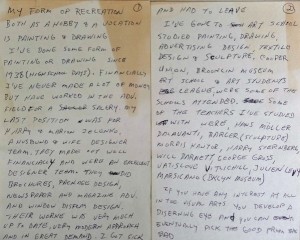 MY FORM OF RECREATION
BOTH AS A HOBBY & A VOCATION
IS PAINTING & DRAWING
I'VE DONE SOME FORM OF
PAINTING OR DRAWING SINCE
1938 (HIGH SCHOOL DAYS). FINANCIALLY
I'VE NEVER MADE A LOT OF MONEY
BUT HAVE WORKED IN THE ADV.
FIELD FOR A SALARY. MY
LAST POSITION WAS FOR
HARRY & MARION ZELENKO,
A HUSBAND & WIFE DESIGNER
TEAM. THEY MADE OUT WELL
FINANCIALLY AND WERE AN EXCELLENT
DESIGNER TEAM. THEY DID
BROCHURES, PACKAGE DESIGN,
NEWSPAPER AND MAGAZINE ADV.
AND WINDOW DISPLAY DESIGN.
THEIR WORK WAS VERY MUCH
UP TO DATE, VERY MODERN APPROACH
AND IN GREAT DEMAND. I GOT SICK
2
AND HAD TO LEAVE
I'VE GONE TO ART SCHOOL
STUDIED PAINTING, DRAWING,
ADVERTISING DESIGN, TEXTILE
DESIGN & SCULPTURE. COOPER
UNION, BROOKLYN MUSEUM
ART SCHOOL & ART STUDENTS
LEAGUE, WERE SOME OF THE
SCHOOLS ATTENDED. SOME
OF THE TEACHERS I'VE STUDIED
WITH WERE HANS MÖLLER
(SCULPTURE)
MORRIS KANTOR, HARRY STERNBERG
WILL BARNET, GEORGE GROSZ,
VYTLACIL, JULIEN LEVY
(BKLYN MUSEUM)
IF YOU HAVE ANY INTEREST AT ALL
IN THE VISUAL ARTS YOU DEVELOP A
DISCERNING EYE AND YOU CAN
EVENTUALLY PICK THE GOOD FROM THE
BAD